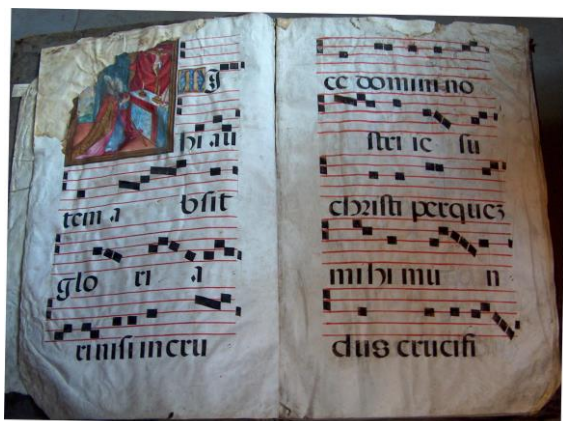 MI
hi au
tem a bsit
glo ri a
ri nisi in cru
ce domini no
stri ie su
christi per quez
mi hi mu n
dus crucifi